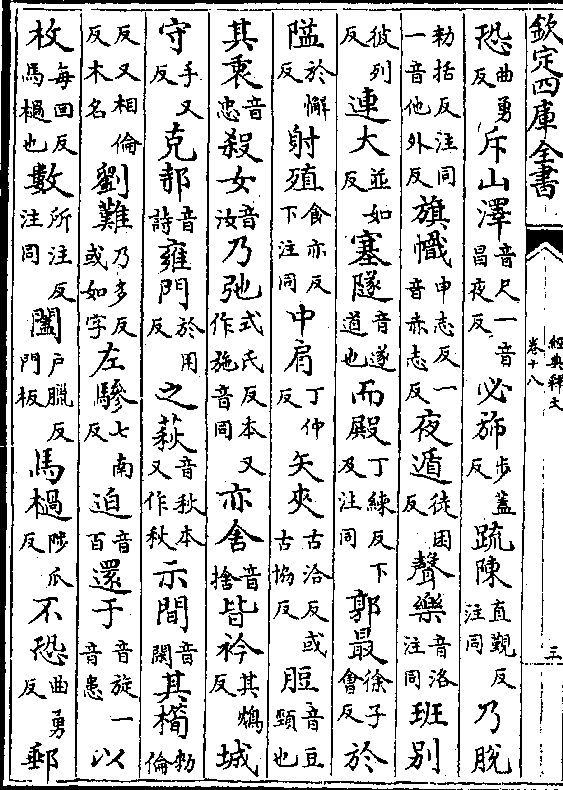 欽定四庫全書
經典釋文
卷十八
三
恐曲勇反斥山澤音尺一音昌夜反必斾步蓋反疏陳直覲反注同乃脫
勑括反注同一音他外反旗幟申志反一音赤志反夜遁徒困反聲樂音洛注同班別
彼列反連大並如反塞隧音遂道也而殿丁練反下及注同郭最徐子會反於
隘於懈反射殖食亦反下注同中肩丁仲反矢夾古洽反或古協反脰音豆頸也
其衷音忠殺女音汝乃弛式氏反本又作施音同亦舍音捨皆衿其鴆反城
守手又反克邿音詩雍門於用反之萩音秋本又作秋示間音閑其橁勑倫
反又相倫反木名劉難乃多反或如字左驂七南反迫音百還于音旋一音患以
枚每回反馬檛也數所注反注同闔戶臘反門板馬檛陟瓜反不恐曲勇反郵